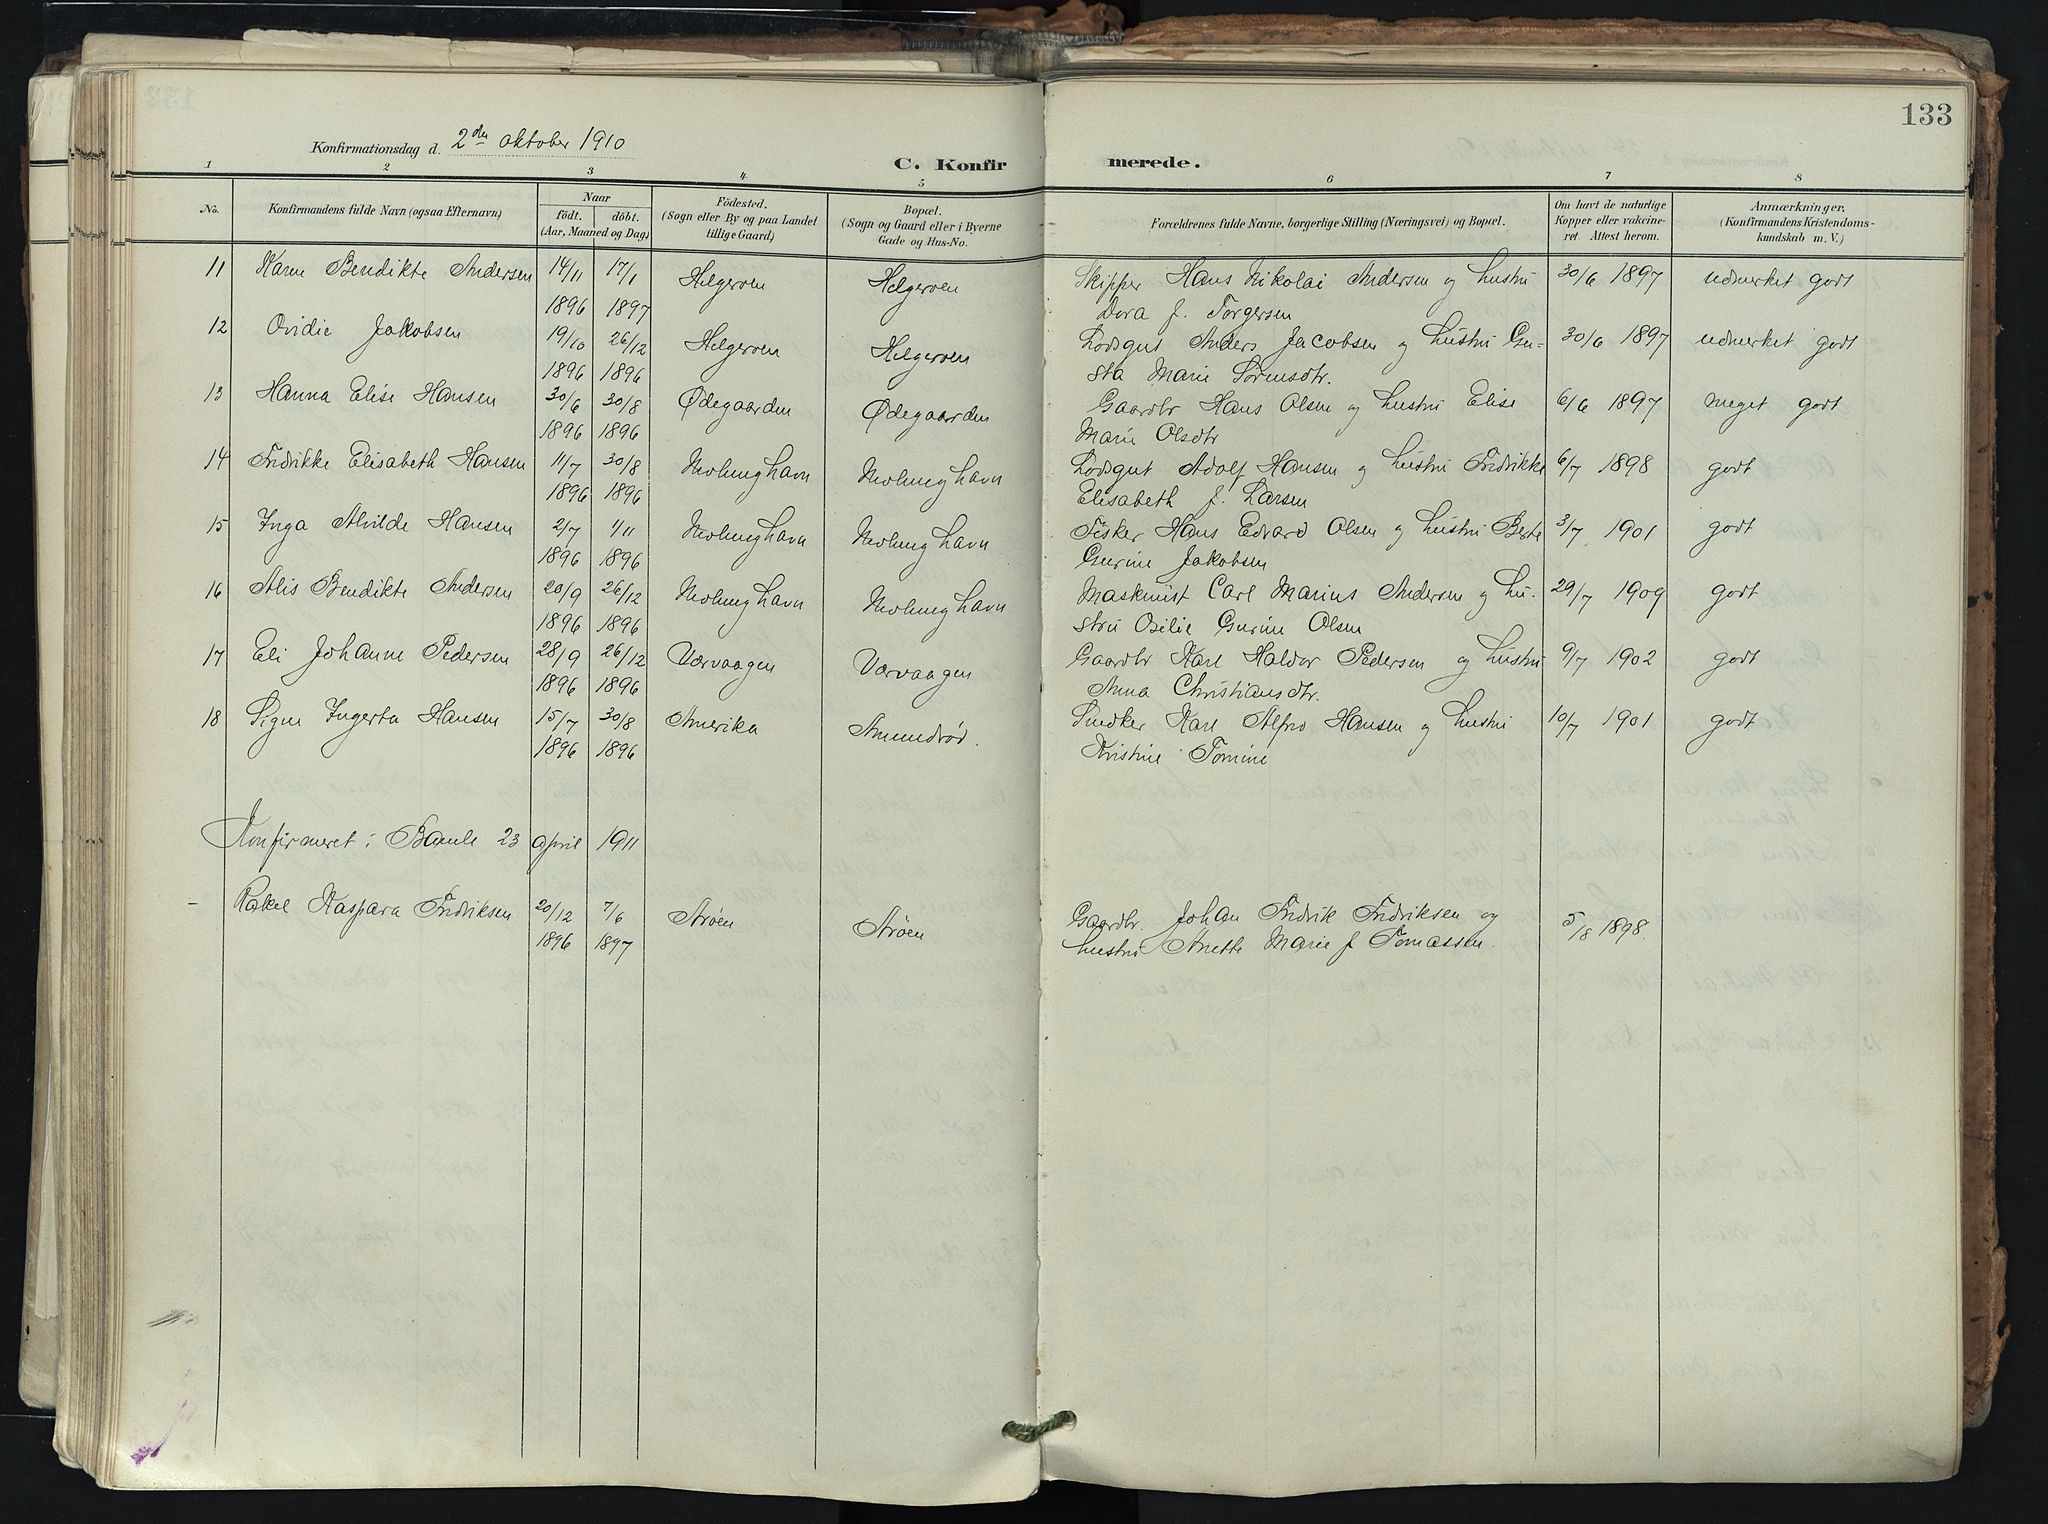 133
Konfirmationsdag d. 2den oktober 1910
C. Konfirmerede.
1 2 3 4 5 6 7 8
No. Konfirmandens fulde Navn (ogsaa Efternavn) Naar født. døbt. (Aar, Maaned og Dag) Födested. (Sogn eller By og paa Landet tillige Gaard) Bopæl. (Sogn og Gaard eller i Byerne Gade og Hus-No. Forældrenes fulde Navne, borgerlige Stilling (Næringsvei) og Bopæl. Om havt de naturlige Kopper eller vakcineret. Attest herom. Anmærkninger. (Konfirmandens Kristendomskundskab m. V.)
11 Karen Bendikte Andersen 14/11 17/1 Helgeroen Helgeroen Skipper Hans Nikolai Andersen og hustru 30/6 1897 udmerket godt
1896 1897 Dora f. Torgersen
12 Ovidie Jakobsen 19/10 26/12 Helgeroen Helgeroen Lodsgut Anders Jacobsen og hustru Gu- 30/6 1897 udmerket godt
1896 1896 sta Marie Sørensdtr.
13 Hanna Elise Hansen 30/6 30/8 Ødegaarden Ødegaarden Gaardbr Hans Olsen og hustru Elise 6/6 1897 meget godt
1896 1896 Marie Olsdtr
14 Fredrikke Elisabeth Hansen 11/7 30/8 Nevlunghavn Nevlunghavn Lodsgut Adolf Hansen og hustru Fredrikke 6/7 1898 godt
1896 1896 Elisabeth f. Larsen
15 Inga Alvilde Hansen 2/7 1/11 Nevlunghavn Nevlunghavn Fisker Hans Edvard Olsen og hustru Berte 3/7 1901 godt
1896 1896 Gurine Jakobsen
16 Alis Bendikte Andersen 20/9 26/12 Nevlunghavn Nevlunghavn Maskinist Carl Marius Andersen og hu- 29/7 1909 godt
1896 1896 stru Osilie Gurine Olsen
17 Eli Johanne Pedersen 28/9 26/12 Værvaagen Værvaagen Gaardbr Karl Haldor Pedersen og hustru 9/7 1902 godt
1896 1896 Anna Christiansdtr.
18 Signe Ingerta Hansen 15/7 30/8 Amerika Amundrød. Snedker Karl Alfred Hansen og hustru 10/7 1901 godt
1896 1896 Kristine Tomine
Konfirmeret i Bamle 23 april 1911
- Rakel Kaspara Fredriksen 20/12 7/6 Arøen Arøen Gaardbr. Johan Fredrik Fredriksen og 5/8 1898.
1896 1897 hustru Anette Marie f Tomassen.